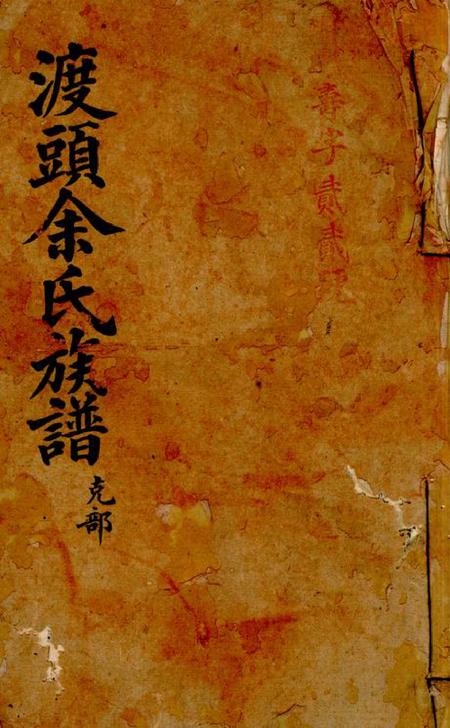 壽字貳貳號
渡頭余氏族譜
克部